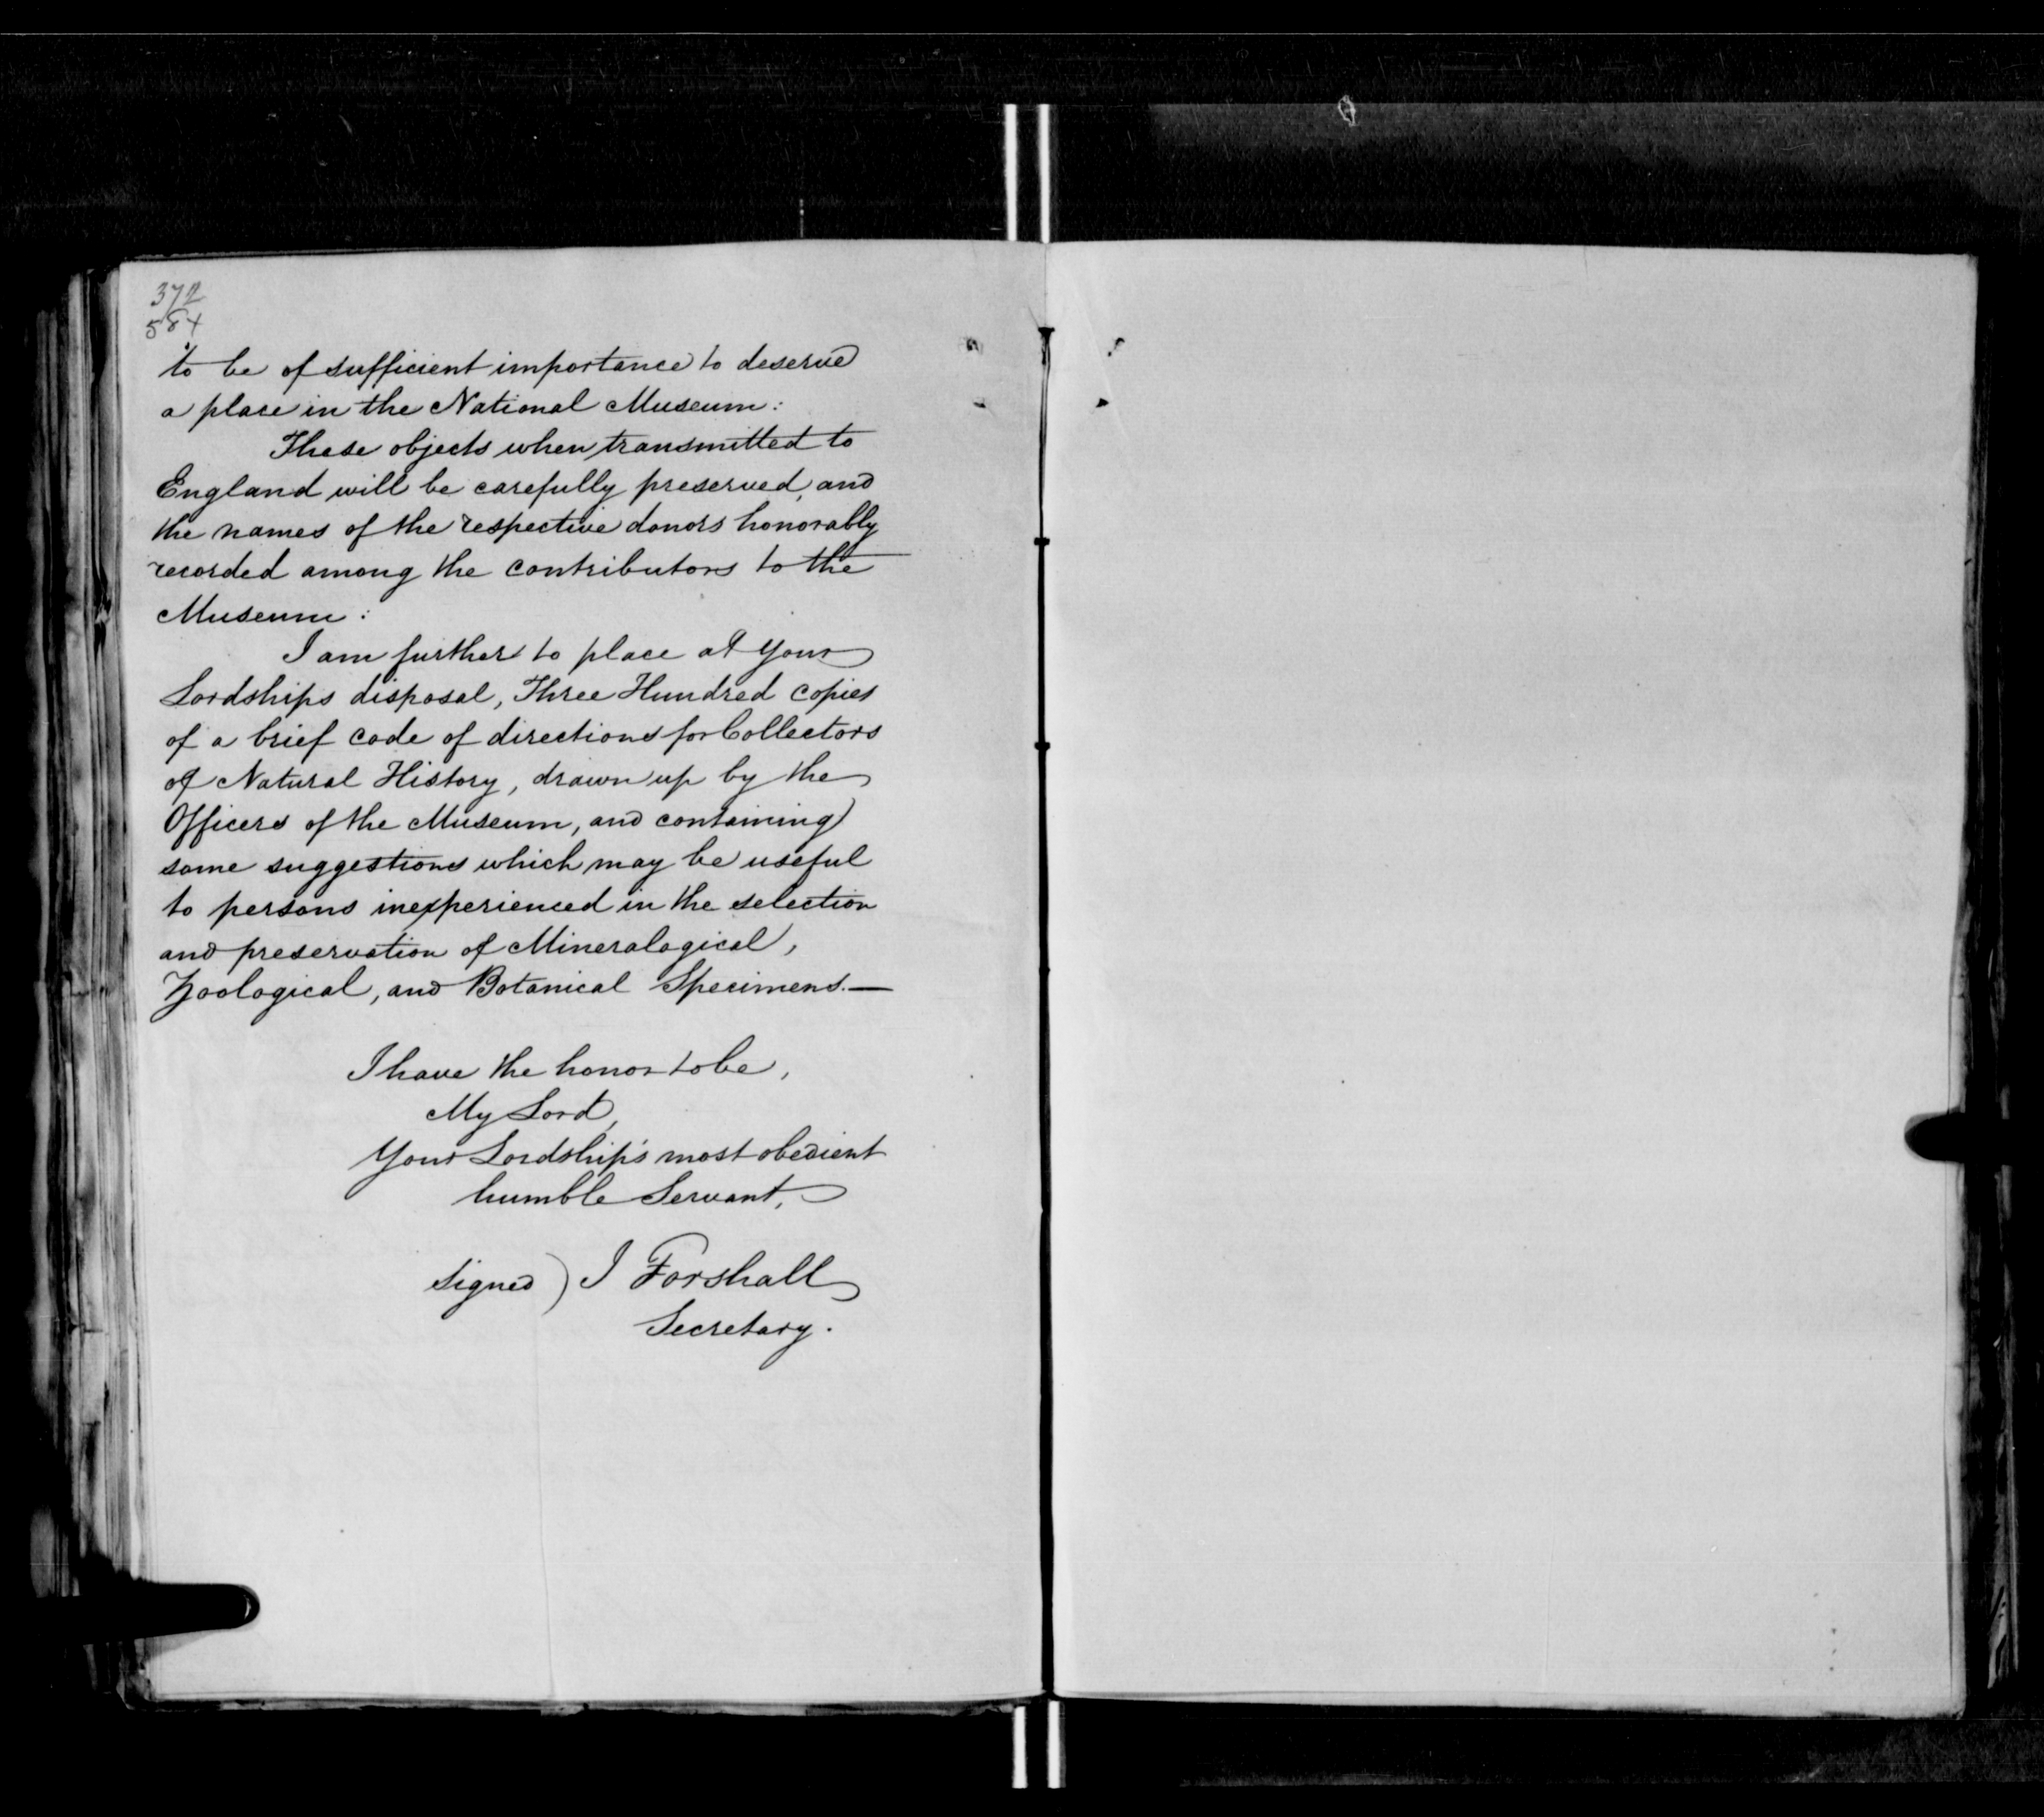 372
584
to be of sufficient importance to deserve
a place in the National Museum:
These objects when transmitted to
England will be carefully preserved, and
the names of the respective donors honorably
recorded among the contributors to the
Museum:
I am further to place at Your
Lordships disposal, Three Hundred copies
of a brief code of directions for Collectors
of Natural History, drawn up by the
Officers of the Museum, and containing
some suggestions which may be useful
to persons inexperienced in the selection
and preservation of Mineralogical,
Zoological, and Botanical Specimens.—
I have the honor to be,
My Lord,
Your Lordship's most obedient
humble Servant,
signed) J Forshall
Secretary.